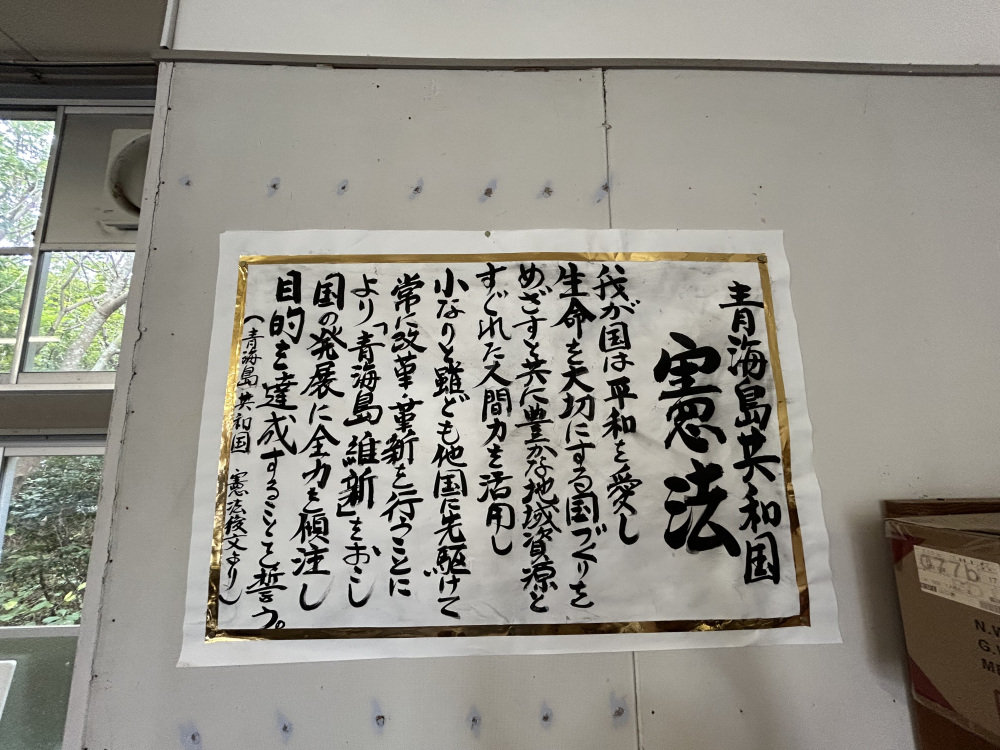 青海島共和国
憲法
我が国は平和を愛し
生命を大切にする国づくりを
めざすと共に豊かな地域資源と
すぐれた人間力を活用し
小なりと雖ども他国に先駆けて
常に改革・革新を行うことに
より「青海島維新」をおこし
国の発展に全力を傾注し
目的を達成することを誓う。
(青海島共和国 憲法後文より)
N.W
G.W
ME